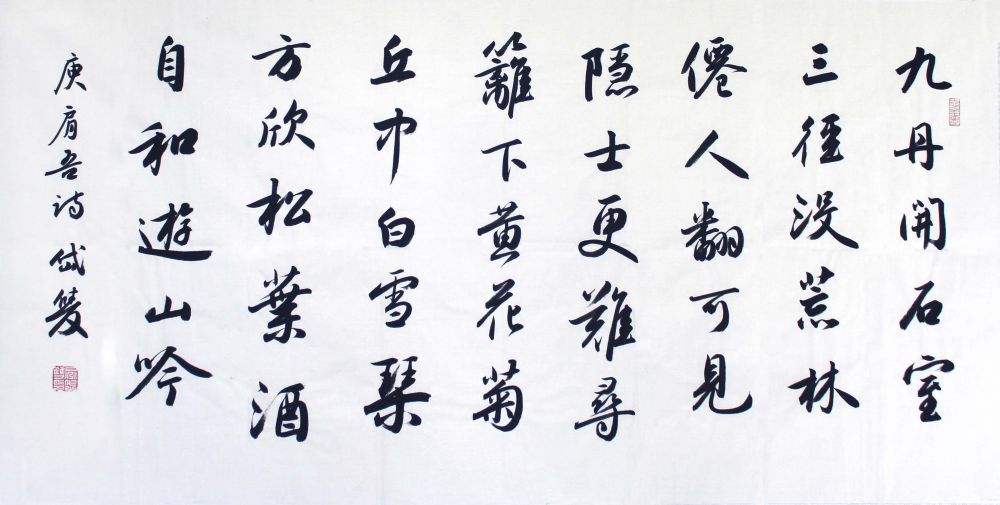 九丹開石室
三徑没荒林
僊人翻可見
隱士更難尋
籬下黄花菊
丘中白雪琴
方欣松葉酒
自和遊山吟
庾肩吾詩 岱